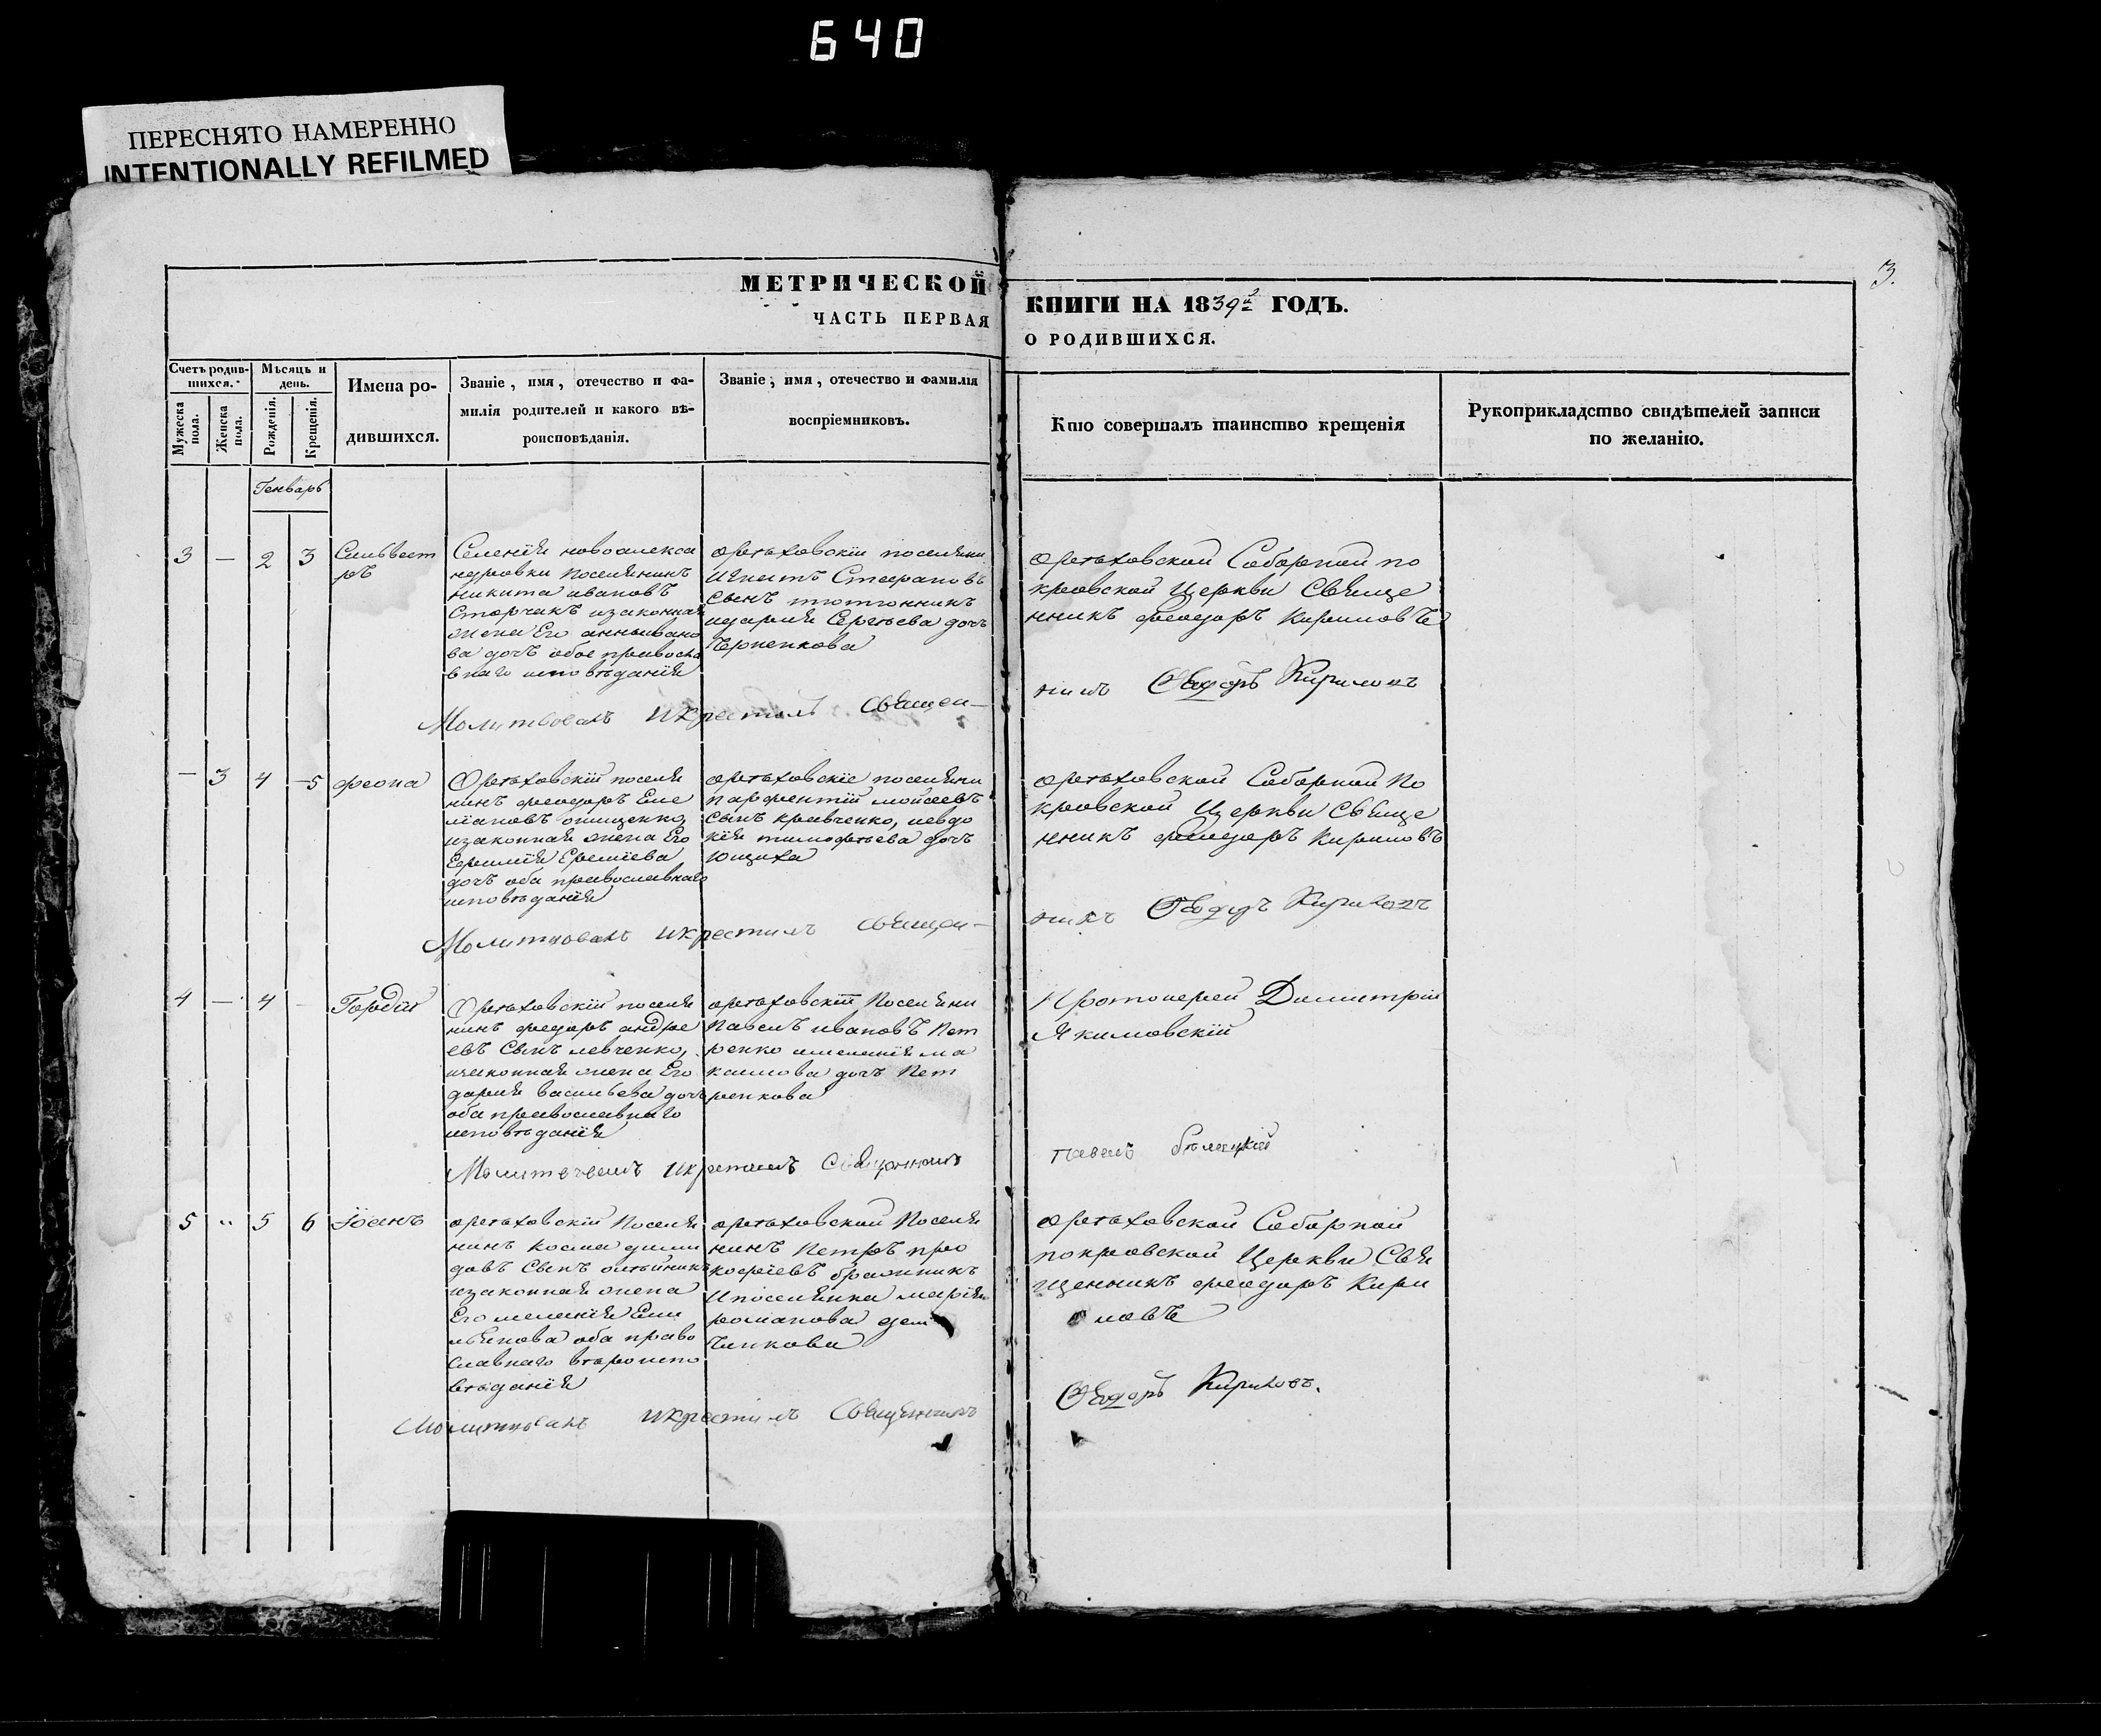 640
ПЕРЕСНЯТО НАМЕРЕННО
INTENTIONALLY REFILMED
3.
МЕТРИЧЕСКОЙ
КНИГИ НА 1839й ГОДЪ.
ЧАСТЬ ПЕРВАЯ
О РОДИВШИХСЯ.
Счетъ родив-
шихся.
Мужеска
пола.
Женска
пола.
Мѣсяцъ и
день.
Рожденія.
Крещенія.
Имена ро-
дившихся.
Званіе, имя, отечество и фа-
милія родителей и какого вѣ-
роисповѣданія.
Званіе, имя, отечество и фамилія
воспріемниковъ.
Кто совершалъ таинство крещенія
Рукоприкладство свидѣтелей записи
по желанію.
Генварь
3 — 2 3
Сильвест
ръ
Селенія новоалекса
ндровки поселянинъ
никита ивановъ
Сторчакъ изаконная
жена Его анна ивано
ва дочъ обое правосла
внаго исповѣданія
орѣховскіи поселяни
Игнатъ Стефановъ
Сынъ тютюнникъ
идарія Сергѣева дочъ
орѣховской Соборной по
кровской Церкви Свяще
нникъ феодоръ Кириловъ
Молитвовалъ икрестилъ Священ—
никъ Ѳеодоръ Кириловъ
— 3 4 5
феона
Орѣховскій поселя
нинъ феодоръ Еме
ліановъ онищенко,
изаконная жена Его
дочъ оба православнаго
исповѣданія
орѣховскіе поселяни
парфентій мойсеевъ
Сынъ кравченко, иевдо
кія тимофѣева дочъ
ющиха
орѣховской Соборной По
кровской Церкви Свяще
нникъ феодоръ Кириловъ
Молитвовалъ икрестилъ Священ—
никъ Ѳеодоръ Кириловъ
4 — 4 —
Гордій
Орѣховскій поселя
нинъ феодоръ андрее
евъ Сынъ левченко,
изаконная жена Его
дарія васильева дочъ
оба православнаго
исповѣданія
орѣховскіи Поселяни
Павелъ ивановъ Пет
ренко имеланія ма
ксимова дочъ Пет
ренкова
Протоиерей Димитрій
Якимовскій
Молитвовалъ икрестилъ Священникъ
павелъ бѣлецкій
5 " 5 6
Іоанъ
орѣховскій Поселя
нинъ косма деми
довъ Сынъ олѣйникъ
изаконная жена
Его меланія Еми
льянова оба право
славнаго вѣроиспо
вѣданія
орѣховской Поселя
нинъ Петръ про
кофіевъ бражникъ
Ипоселянка марія
романова дем
ченкова
орѣховской Соборной
покровской Церкви Свя
щенникъ феодоръ Кири
ловъ
Молитвовалъ икрестилъ Священникъ
Ѳеодоръ Кириловъ.